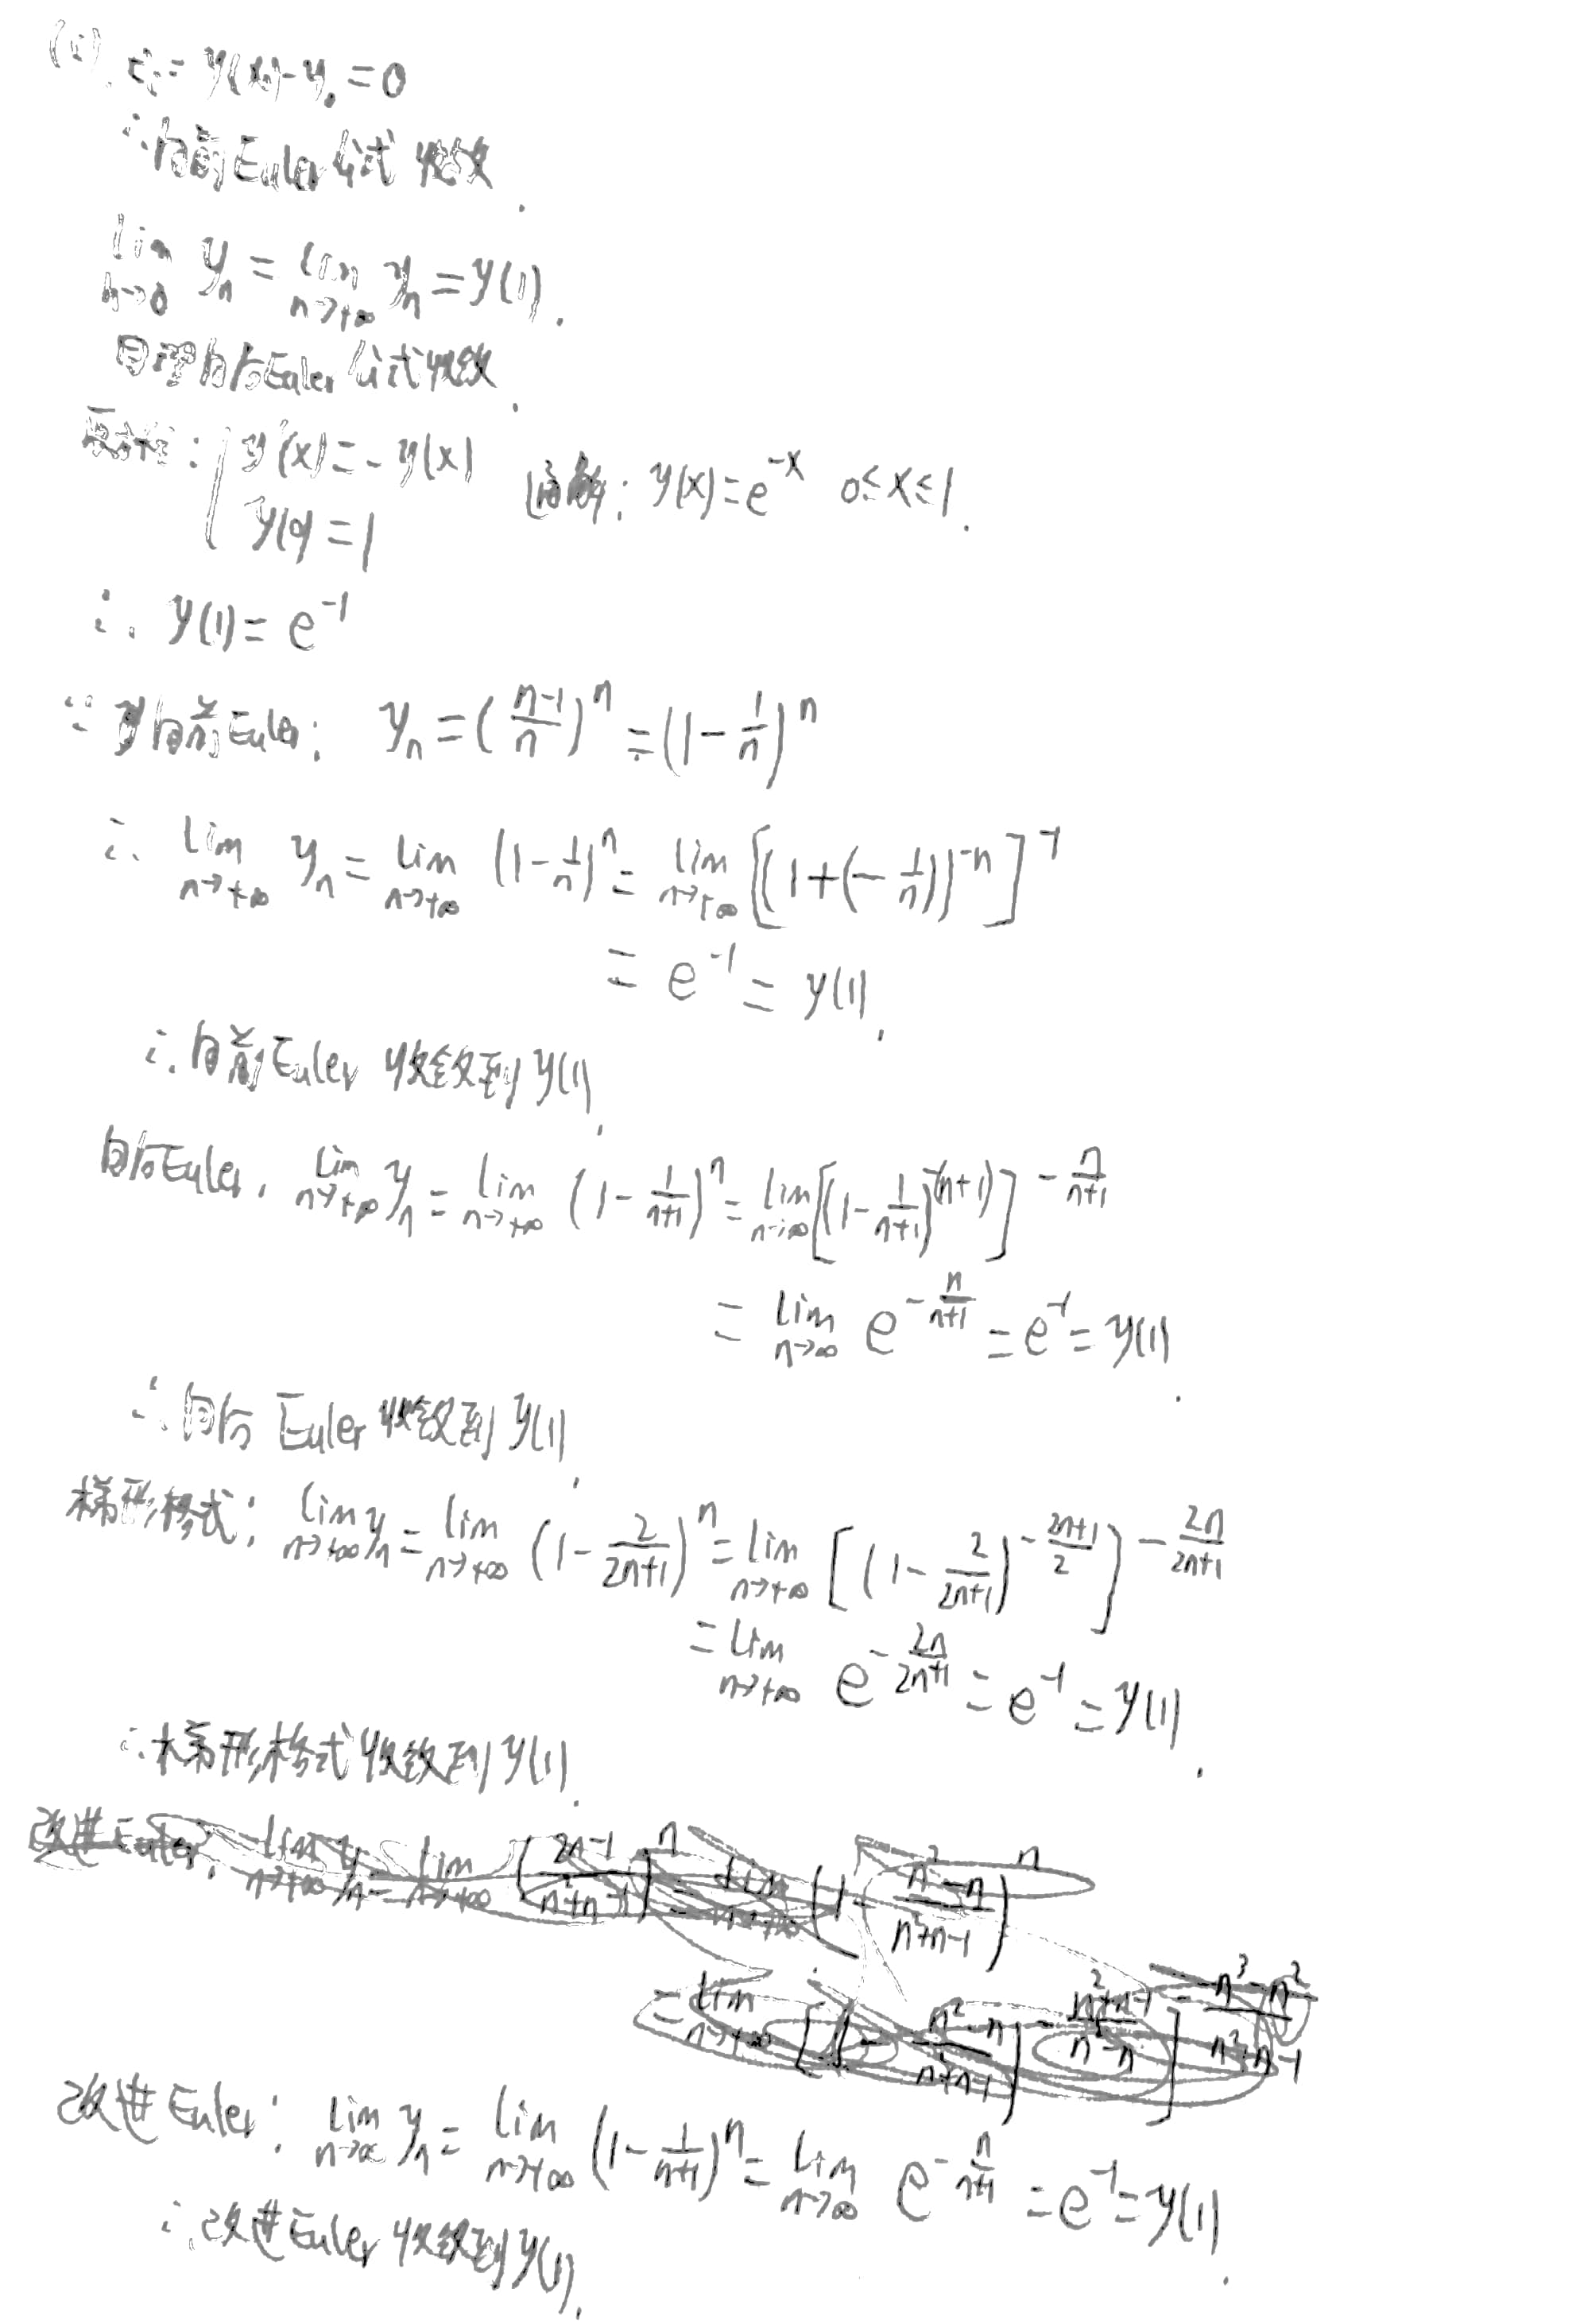 (ii) ε₀ = y(x₀) - y₀ = 0
∴ 向前Euler公式收敛.
lim_{h→0} yₙ = lim_{n→+∞} yₙ = y(1).
同理向后Euler公式收敛.
原方程: { y'(x) = -y(x)  通解: y(x) = e^{-x}  0 ≤ x ≤ 1.
y(0) = 1
∴ y(1) = e^{-1}
∵ 对向前Euler: yₙ = (\frac{n-1}{n})^n = (1 - \frac{1}{n})^n
∴ lim_{n→+∞} yₙ = lim_{n→+∞} (1 - \frac{1}{n})^n = lim_{n→+∞} [(1 + (-\frac{1}{n}))^{-n}]^{-1}
= e^{-1} = y(1).
∴ 向前Euler 收敛到 y(1).
向后Euler, lim_{n→+∞} yₙ = lim_{n→+∞} (1 - \frac{1}{n+1})^n = lim_{n→∞} [(1 - \frac{1}{n+1})^{-(n+1)}]^{-\frac{n}{n+1}}
= lim_{n→∞} e^{-\frac{n}{n+1}} = e^{-1} = y(1).
∴ 向后 Euler 收敛到 y(1).
梯形格式: lim_{n→+∞} yₙ = lim_{n→+∞} (1 - \frac{2}{2n+1})^n = lim_{n→+∞} [(1 - \frac{2}{2n+1})^{-\frac{2n+1}{2}}]^{-\frac{2n}{2n+1}}
= lim_{n→+∞} e^{-\frac{2n}{2n+1}} = e^{-1} = y(1).
∴ 梯形格式收敛到 y(1).
改进Euler: lim_{n→∞} yₙ = lim_{n→+∞} (1 - \frac{1}{n+1})^n = lim_{n→∞} e^{-\frac{n}{n+1}} = e^{-1} = y(1).
∴ 改进Euler 收敛到 y(1).